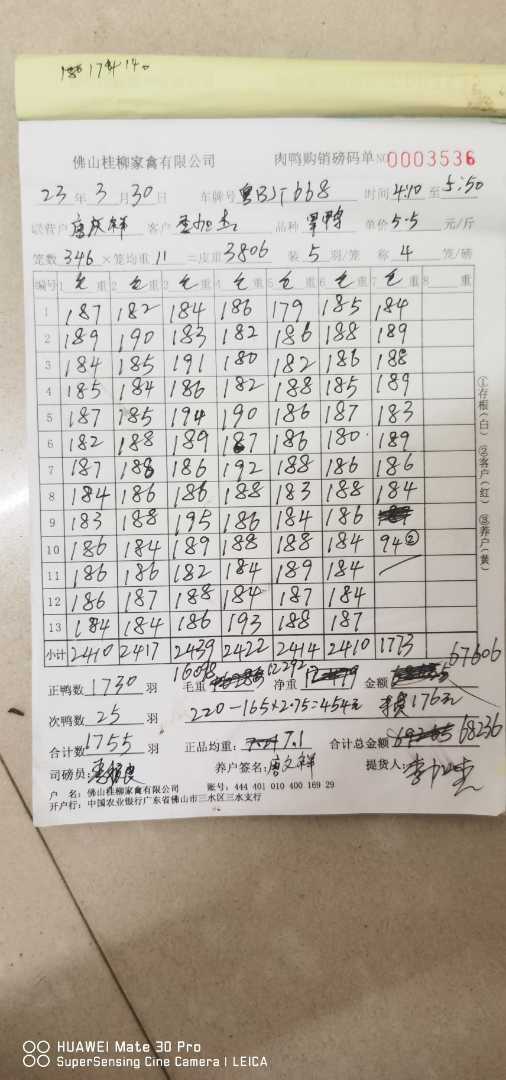 佛山桂柳家禽有限公司 肉鸭购销磅码单 NO 0003536
23 年 3 月 30 日 车牌号 时间 4:10 至 5:50
客户 品种 单价 5.5 元/斤
笼数 346 ×笼均重 11 =皮重 3806 装 5 羽/笼 称 4 笼/磅
编号 1 毛 重 2 毛 重 3 毛 重 4 毛 重 5 毛 重 6 毛 重 7 毛 重 8 重
1 187 182 184 186 179 185 184
2 189 190 183 182 186 188 189
3 184 185 191 180 182 186 188
4 185 184 186 182 188 185 189
5 187 185 194 190 186 187 183
6 182 188 189 187 186 180 189
7 187 188 186 192 188 186 186
8 184 186 186 188 183 188 184
9 183 188 195 186 184 186
10 186 184 189 188 188 184 94②
11 186 186 182 184 189 184
12 186 187 188 184 187 184
13 184 184 186 193 188 187
小计 2410 2417 2439 2422 2414 2410 1773
①存根(白) ②客户(红) ③养户(黄)
16098 12292 67606
正鸭数 1730 羽 毛重 净重 金额
次鸭数 25 羽 220-165×2.75=454元 176元
合计数 1755 羽 正品均重: 7.1 合计总金额 68236
司磅员: 养户签名: 唐文祥 提货人:
户 名: 佛山桂柳家禽有限公司 账号: 444 401 010 400 169 29
开户行: 中国农业银行广东省佛山市三水区三水支行
HUAWEI Mate 30 Pro
SuperSensing Cine Camera | LEICA